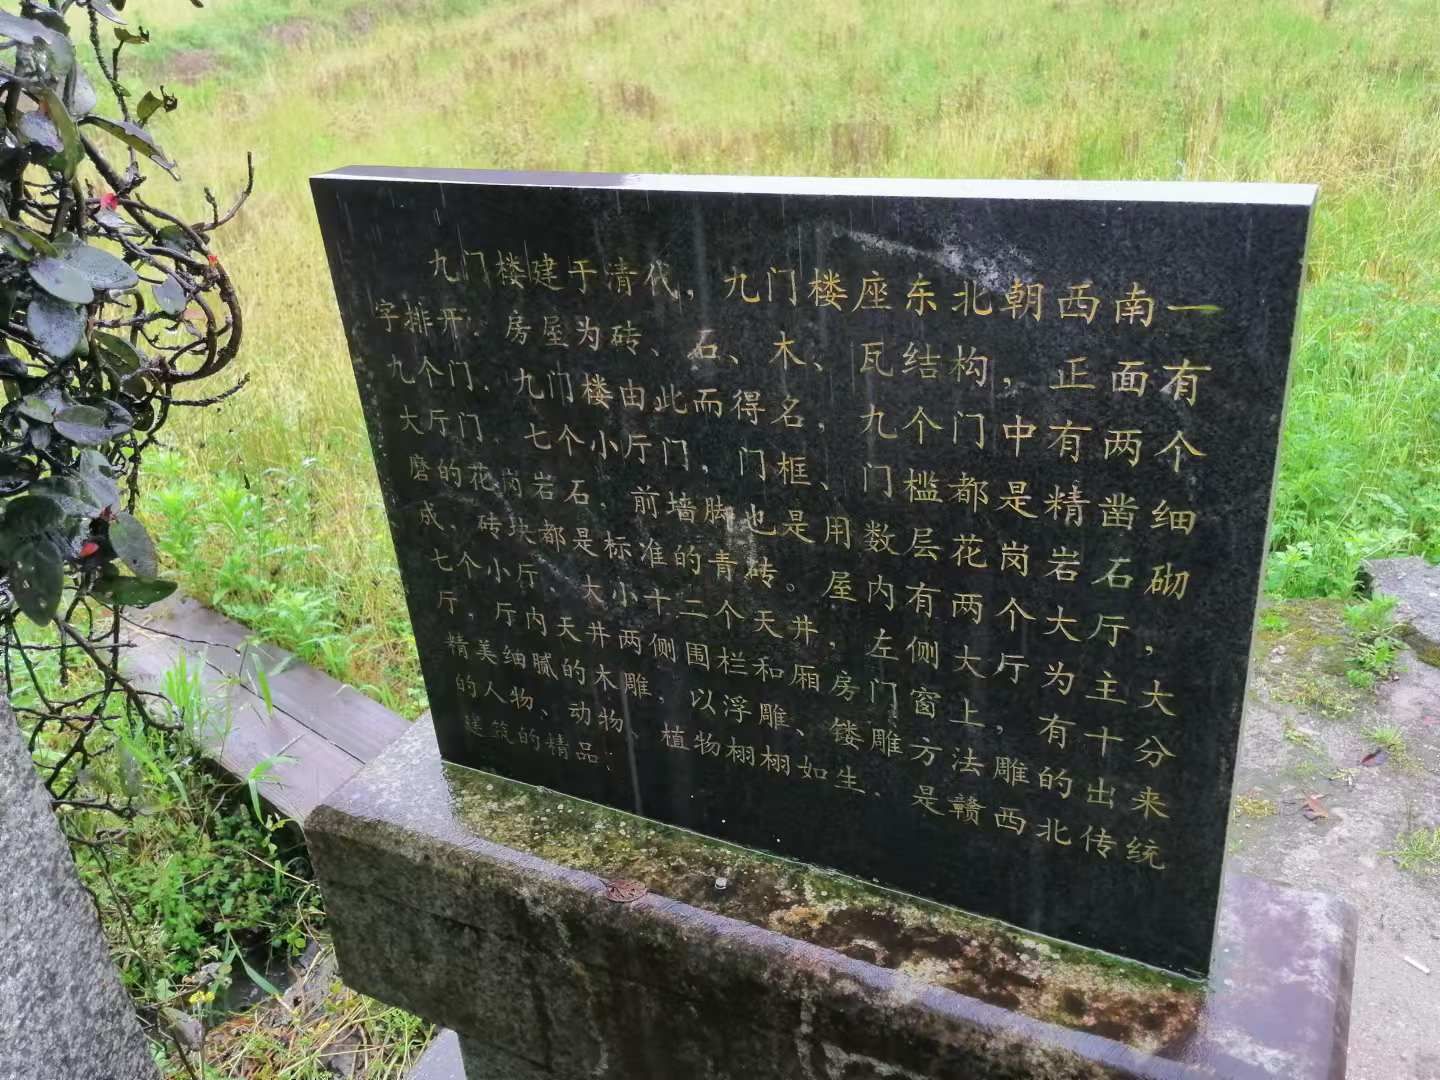 九门楼建于清代，九门楼座东北朝西南一
字排开．房屋为砖、石、木、瓦结构，正面有
九个门．九门楼由此而得名，九个门中有两个
大厅门．七个小厅门，门框、门槛都是精凿细
磨的花岗岩石．前墙脚也是用数层花岗岩石砌
成．砖块都是标准的青砖。屋内有两个大厅，
七个小厅．大小十二个天井，左侧大厅为主大
厅．厅内天井两侧围栏和厢房门窗上，有十分
精美细腻的木雕，以浮雕、镂雕方法雕的出来
的人物、动物、植物栩栩如生．是赣西北传统
建筑的精品：